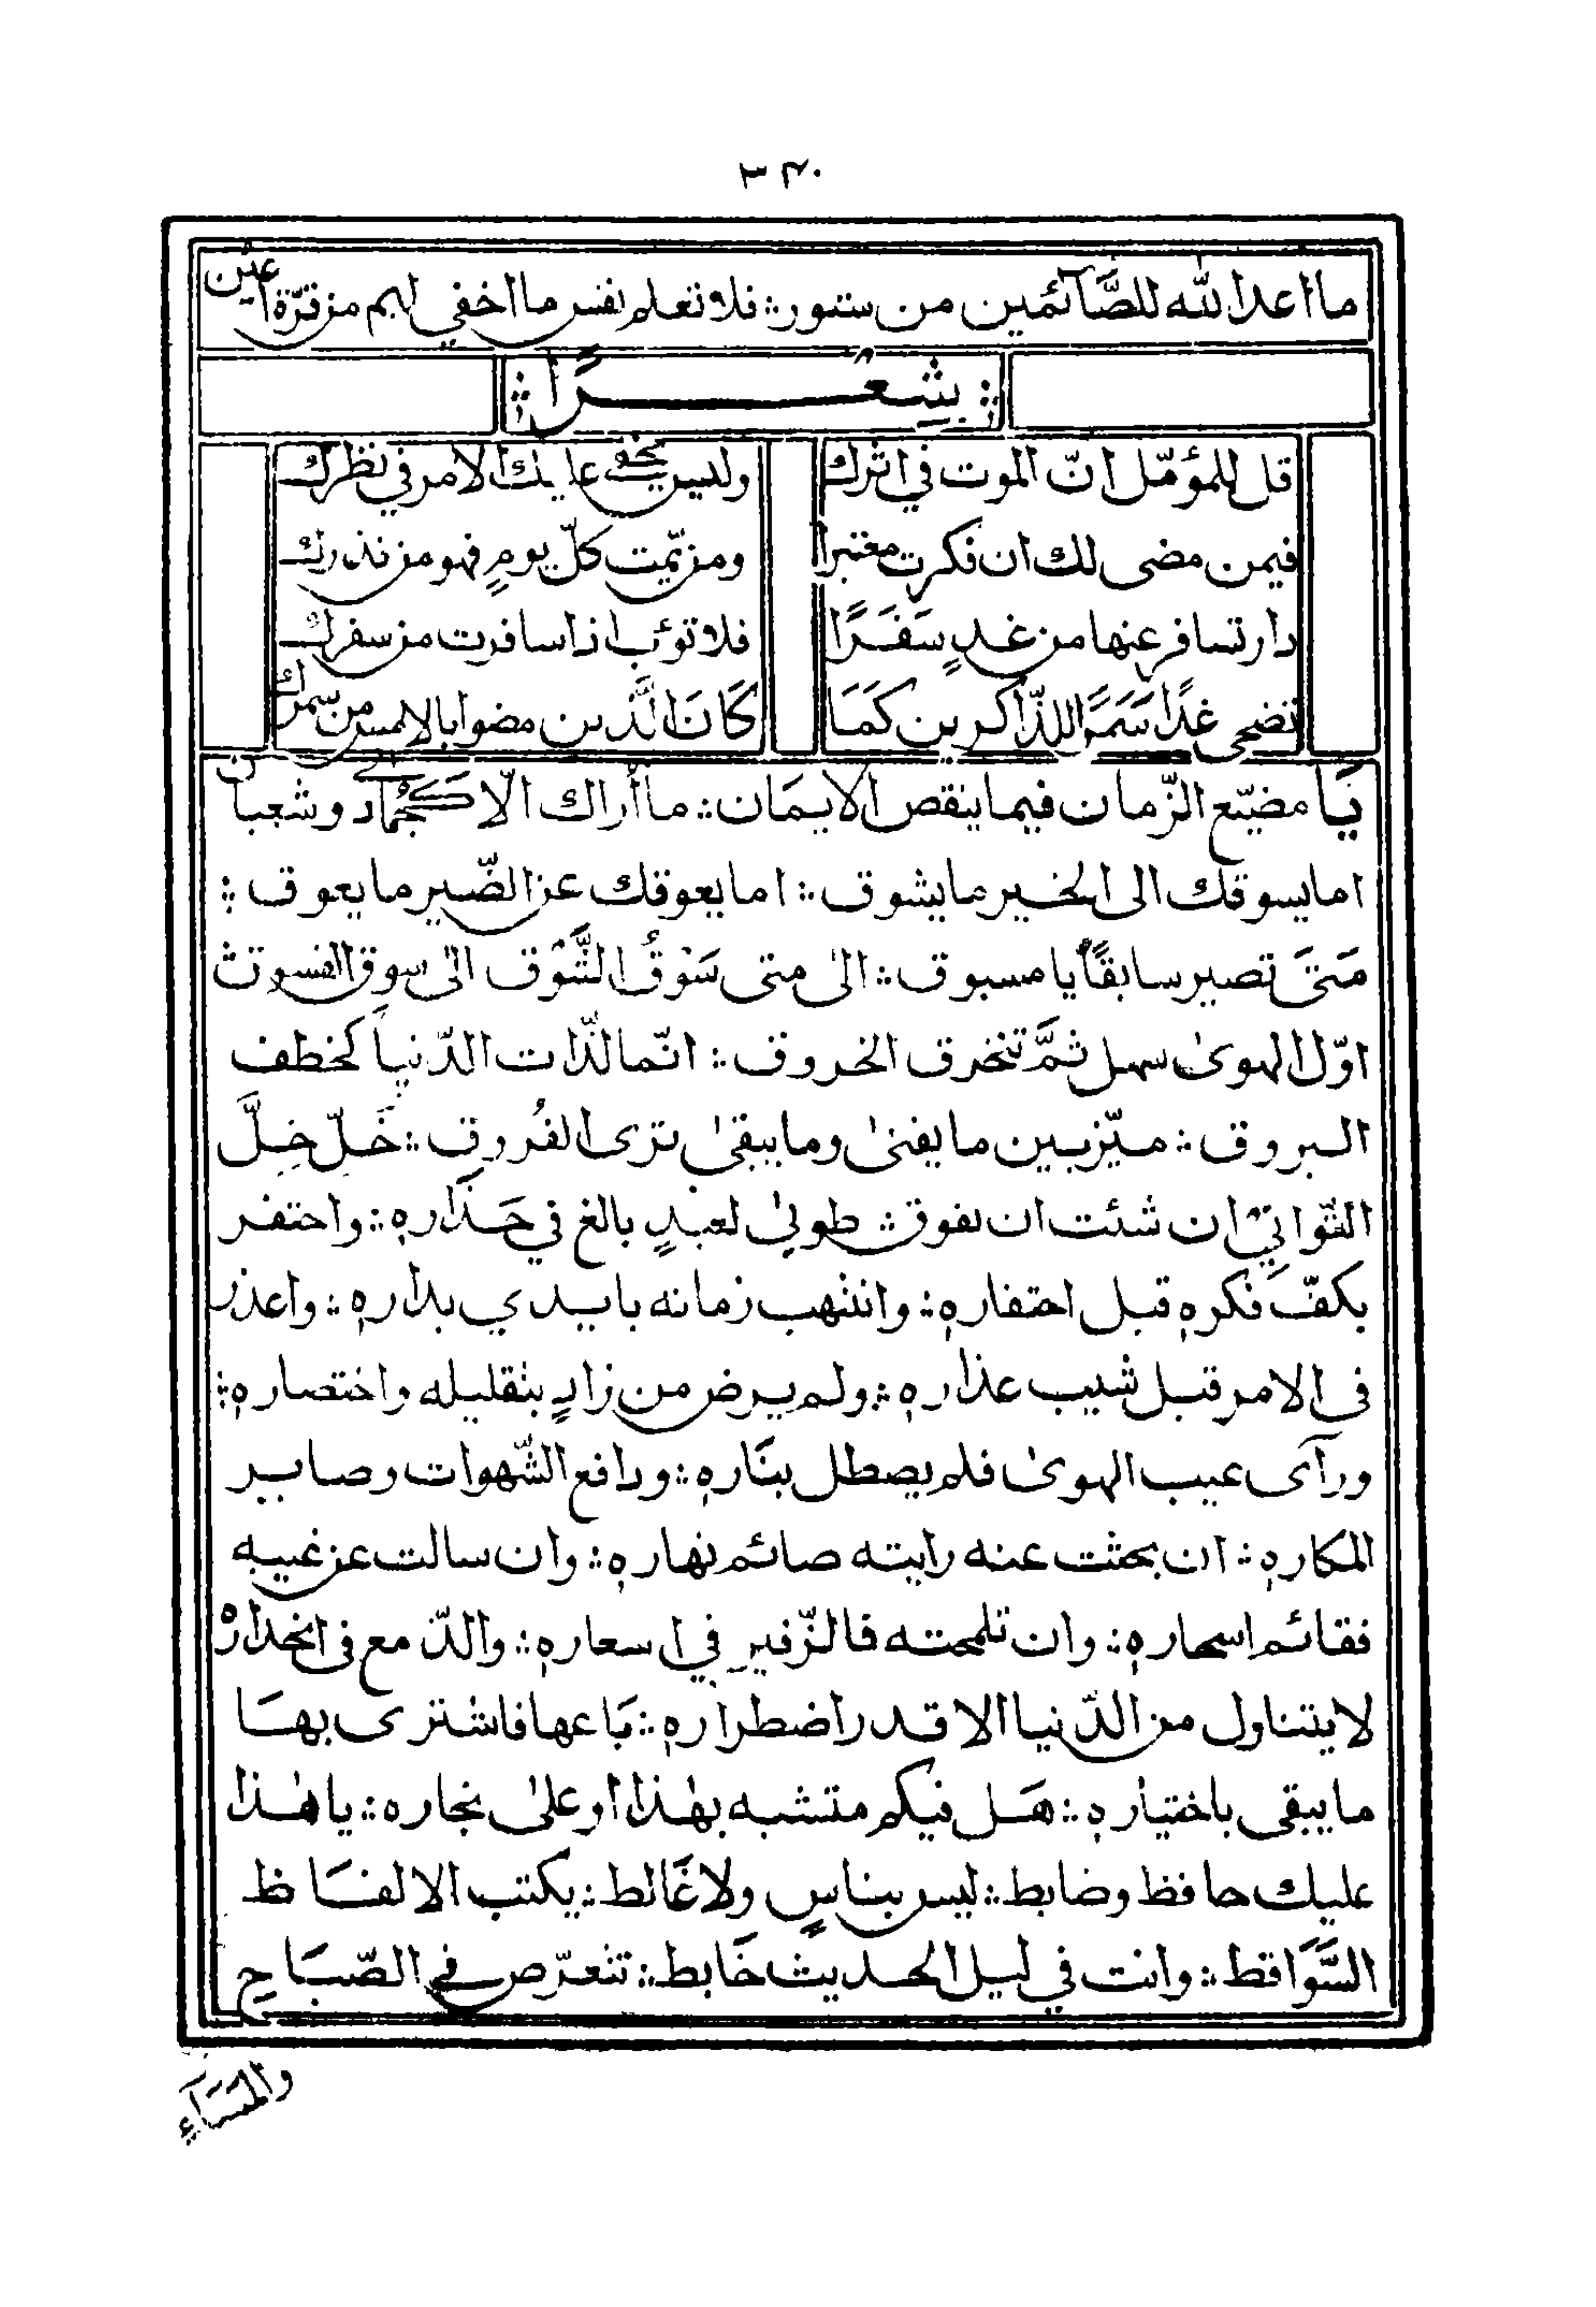 ۳۴۰
ما اعد الله للصَّآئمين من ستور :: فلا تعلم نفس ما اخفي لهم من قرّة اعين
:: شِعْـــــرًا ::
قل للمؤمّل انّ الموت في اثرك وليس يخفى عليك الامر في نظرك
فيمن مضى لك ان فكرت معتبرا ومن يّمت كلّ يومٍ فهو من نذرك
دار تسافر عنها من غدٍ سَفَرًا فلا تؤب اذا سافرت من سفرك
تضحى غدًا سَمَرًا للذّاكرين كَمَا كَانَ الَّذين مضوا بالامس من سمرك
يَا مضيّع الزّمان فيما ينقص الايمَان :: ما أراك الّا كجمادى وشعبان
اما يسوقك الى الخير ما يشوق :: اما يعوقك عن الضّير ما يعوق ::
مَتىَ تصير سابقًا يا مسبوق :: الى متى سَوْقُ الشَّوْق الى سوق الفسوق
اوّل الهوى سهل ثمَّ تنخرق الخروق :: انّما لذّات الدّنيا كخطف
البروق :: ميّز بين ما يفنى وما يبقى ترى الفُروق :: خَلِّ خِلَّ
التّواني ان شئت ان تفوق :: طوبى لعبدٍ بالغ في حَذَاره :: واحتفر
بكفّ فكره قبل احتفاره :: وانتهب زمانه بايدي بداره :: واعذر
فى الامر قبل شيب عذاره :: ولم يرض من زادٍ بتقليله واختصاره ::
ورآى عيب الهوى فلم يصطل بنَاره :: ودافع الشّهوات وصابر
المكاره :: ان بحثت عنه رايته صائم نهاره :: وان سالت عن غيبه
فقائم اسحاره :: وان تلمحته فالزّفير في اسعاره :: والدّمع فى انحداره
لا يتناول من الدّنيا الا قدر اضطراره :: بَاعها فاشترى بهَا
ما يبقى باختياره :: هَل فيكم متشبه بهٰذا او علىٰ نجاره :: يا هٰذا
عليك حافظ وضابط :: ليس بناسٍ ولا غَالط :: يكتب الالفَاظ
السَّوَاقط :: وانت في ليل الحديث خَابط :: تتعرّض فى الصّبَاحِ
والمَسَآءِ